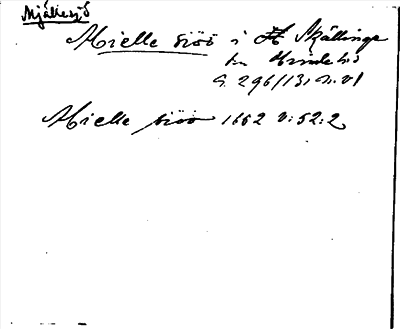 Mjällesjö
Mielle siöö i St Skällinge
sn Himle hd
s. 296/131 n. v1
Mielle siöö 1662 v: 52: 2